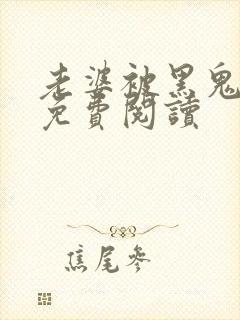 老婆被黑鬼
免費閱讀
焦尾參